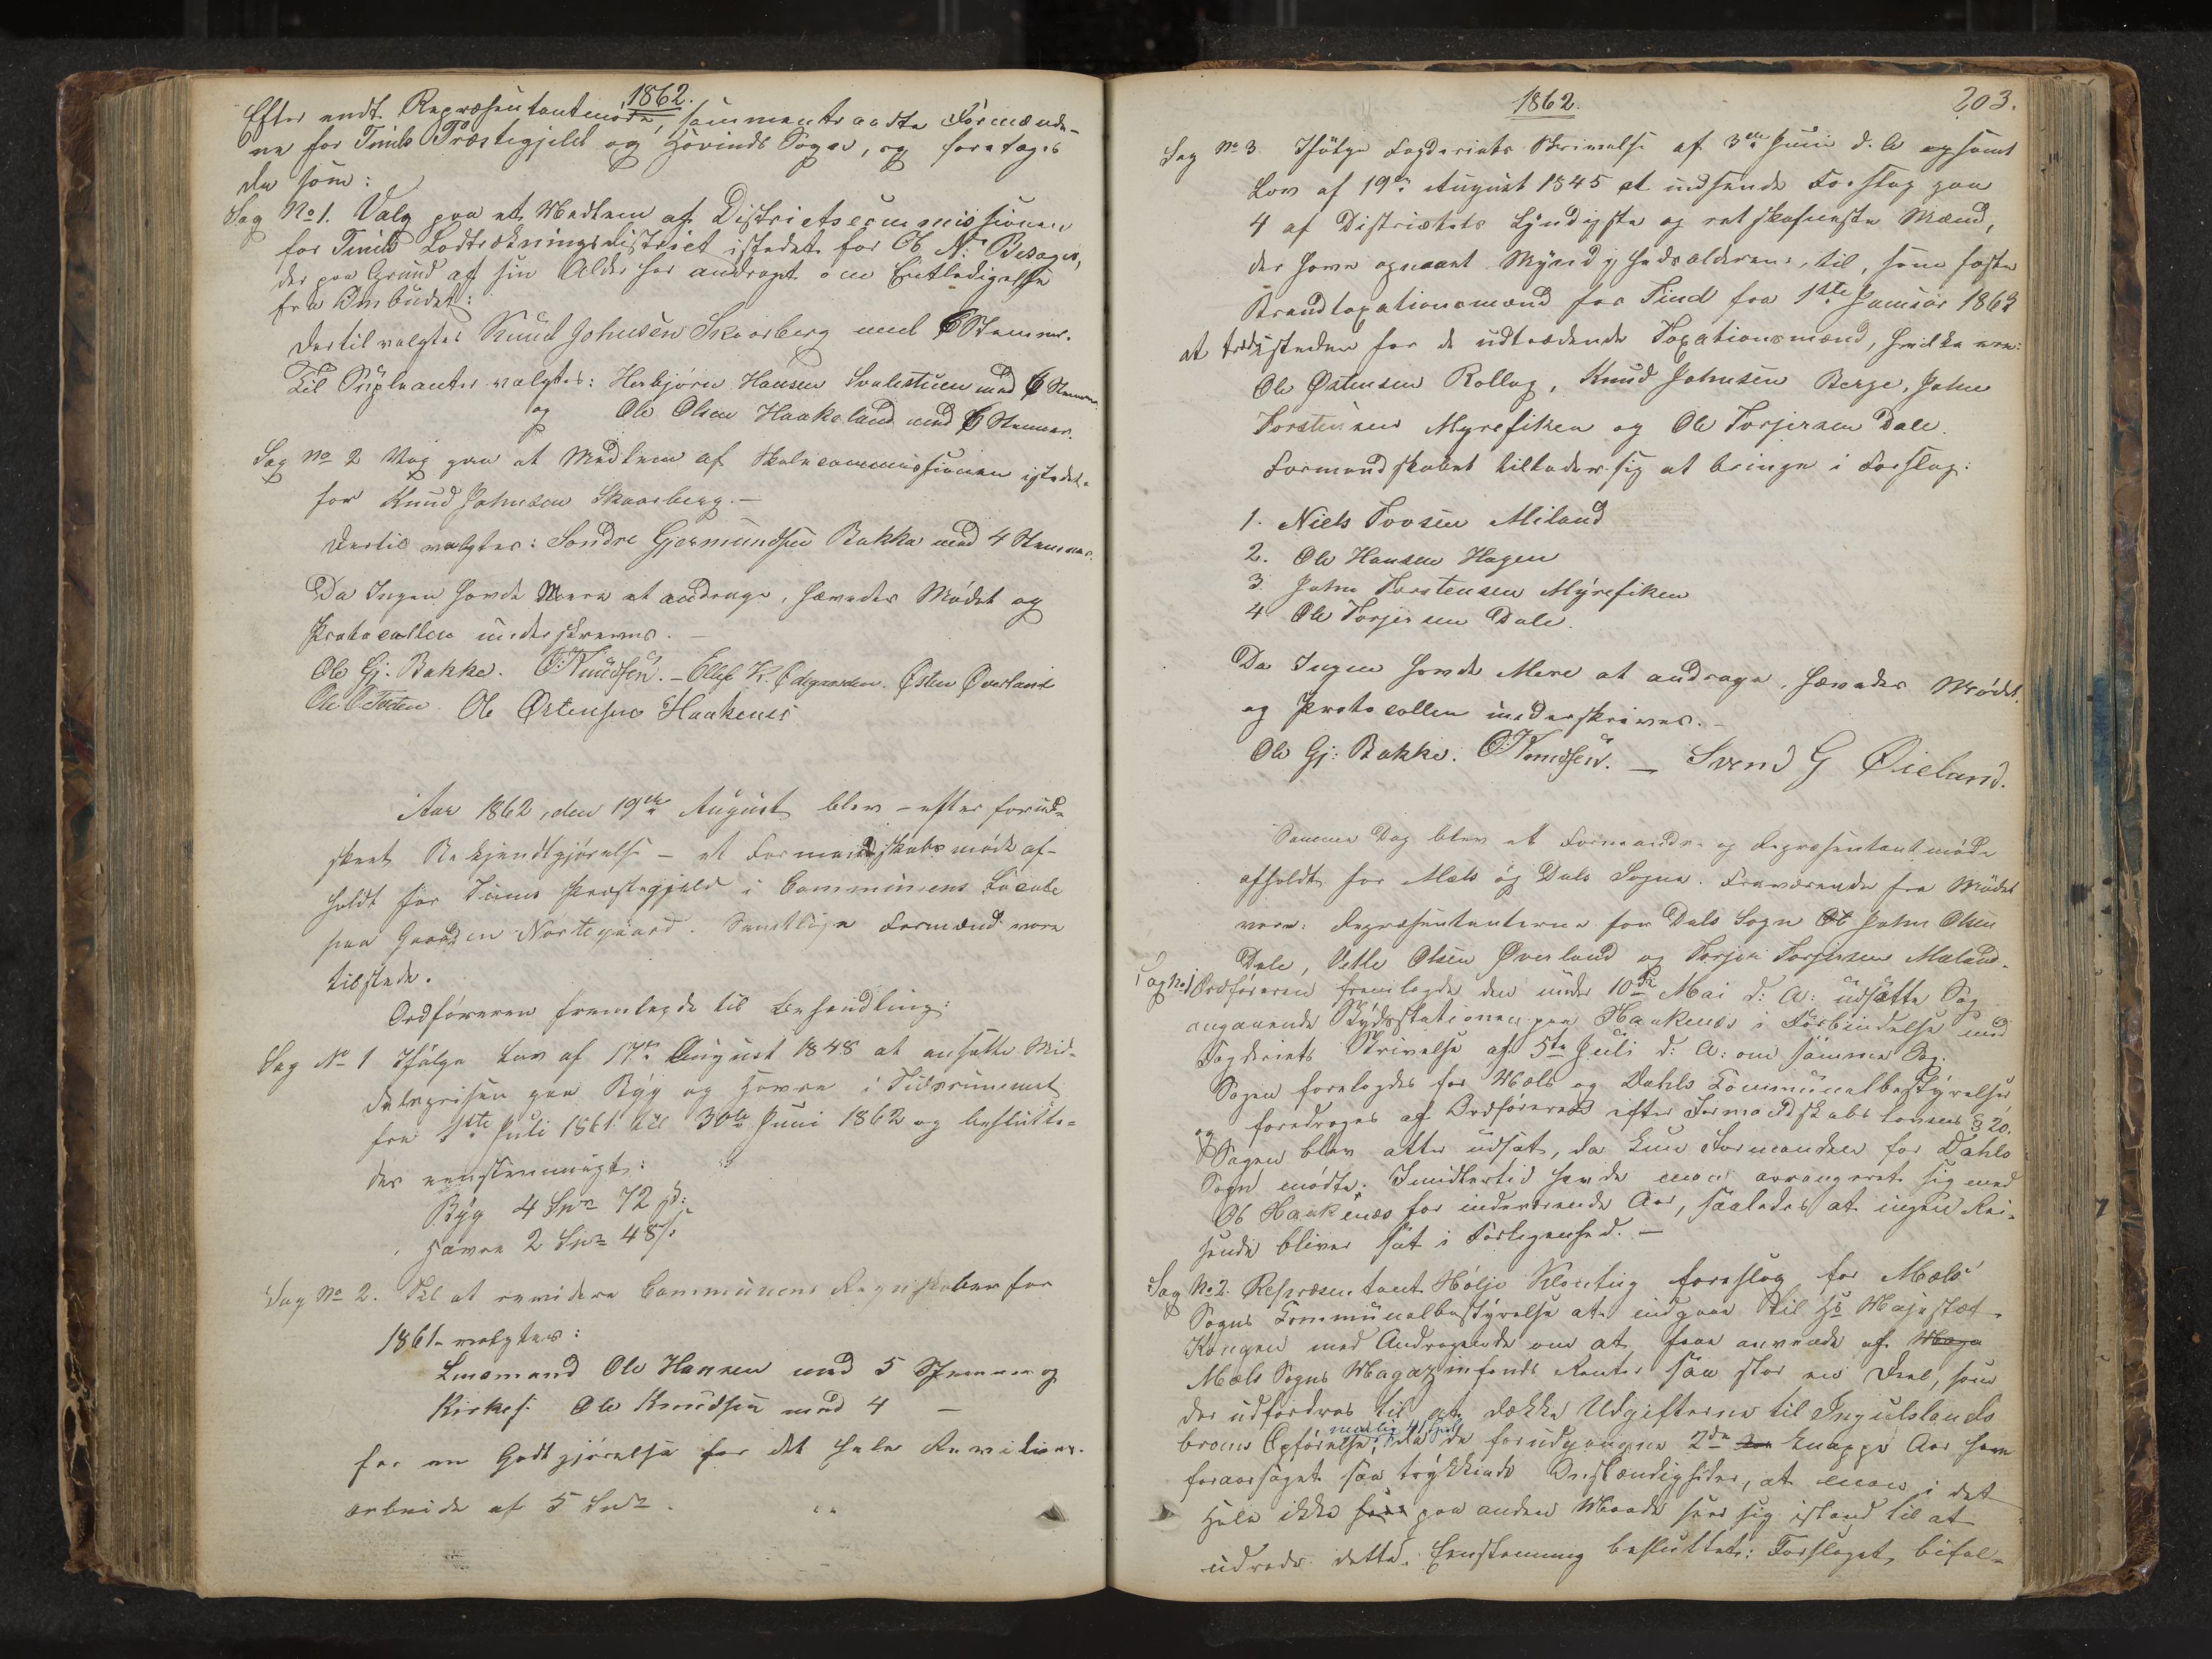 1862.
Efter endt Repræsentantmøde, sammentraadte Formænde-
ne for Tinds Præstegjeld og Hovinds Sogn, og foretoges
da som:
Sag No 1. Valg paa et Medlem af Districtscommissionen
for Tinds Lodtrækningsdistrict istedet for Ob. N.
der paa Grund af sin Alder har andraget om Entledigelse
fra Ombudet:
Dertil valgtes Knud Johnsen Skaarberg med 6 Stemmer.
Til Supleanter valgtes: Herbjørn Hansen med 6 Stemmer
og Ole Olsen Haakaland med 6 Stemmer.
Sag No 2 Valg paa et Medlem af Skolecommissionen istedet-
for Knud Johnsen Skaarberg. —
Dertil valgtes: Søndre Gjermundsen Bakka med 4 Stemmer.
Da Ingen havde Mere at andrage, hævedes Mødet og
Protocollen underskreves. —
Ole Gj. Bakke. O: Knudsen. — Ellef K. Østen Øverland
Ole Østensen Haakenes
Aar 1862, den 19de August blev – efter forud-
skeet Bekjendtgjørelse – et Formandskabsmøde af-
holdt for Tinns Præstegjeld i Communens Locale
paa Gaarden Nørstegaard. Samtlige Formænd vare
tilstede.
Ordføreren fremlagde til Behandling:
Sag No 1 Ifølge Lov af 17de August 1848 at ansætte Mid-
delprisen paa Byg og Havre i Tidsrummet
fra 1ste Juli 1861 til 30te Juni 1862 og beslutte-
des eenstemmigt:
Byg 4 Spd 72 ß:
Havre 2 Spd 48 ß:
Sag No 2. Til at revidere Communens Regnskaber for
1861 valgtes:
Lensmand Ole Hansen med 5 Stemmer og
Kirkes: Ole Knudsen med 4 —
for en Godtgjørelse for det hele Revisions-
arbeide af 5 Spd.
1862.
203.
Sag No 3. Ifølge Fogderiets Skrivelse af 3die Juni d. A og samt
Lov af 19de August 1845 at indsende Forslag paa
4 af Districtets kyndigste og retskafneste Mænd,
der have opnaaet Myndighedsalderen, til, som faste
Brandtaxationsmænd for Tind fra 1ste Januar 1863
at træde isteden for de udtrædende Taxationsmænd, hvilke ere:
Ole Østensen Rollag, Knud Johnsen Berge, John
Torstensen Myrefiken og Ole Torjersen Dale.
Formandskabet tillader sig at bringe i Forslag:
1. Niels Tovsen Miland
2. Ole Hansen Hagen
3. John Torstensen Myrefiken
4 Ole Torjersen Dale.
Da Ingen havde Mere at andrage, hævedes Mødet
og Protocollen underskreves. —
Ole Gj: Bakke. O: Knudsen. — Svend G Øieland.
Samme Dag blev et Formands- og Repræsentantmøde
afholdt for Mæls og Dals Sogne. Fraværende fra Mødet
vare: Repræsentanterne for Dals Sogn John Olsen
Dale, Vetle Olsen Øverland og Torjer Torjersen Mæland.
Sag No 1 Ordføreren fremlagde den under 10de Mai d: A: udsatte Sag
angaaende Skydsstationen paa Haakenæs i Forbindelse med
Fogderiets Skrivelse af 5te Juli d: A: om samme Sag.
Sagen forelagdes for Mæls og Dahls Communalbestyrelser
og foredroges af Ordføreren efter Formandskabs Lovens § 20.
Sagen blev atter udsat, da kun Formanden for Dahls
Sogn mødte. Imidlertid havde man arrangeret sig med
Ole Haakenæs for indeværende Aar, saaledes at ingen Rei-
sende bliver sat i Forlegenhed. —
Sag No 2. Repræsentant Hølje foreslog for Mæls
Sogns Communalbestyrelse at indgaae til Hs Majestæt
Kongen med Andragende om at faae anvendt af Maga
Mæls Sogns Magazinfonds Renter saa stor en Deel, som
der udfordres til at dække Udgifterne til Ingulslands
broens Opførelse, nemlig 41 Spd, da de forudgangne 2de knappe Aar have
foraarsaget saa trykkende Omstændigheder, at man i det
Hele ikke paa anden Maade seer sig istand til at
udrede dette. Eenstemmig besluttet: Forslaget bifal-